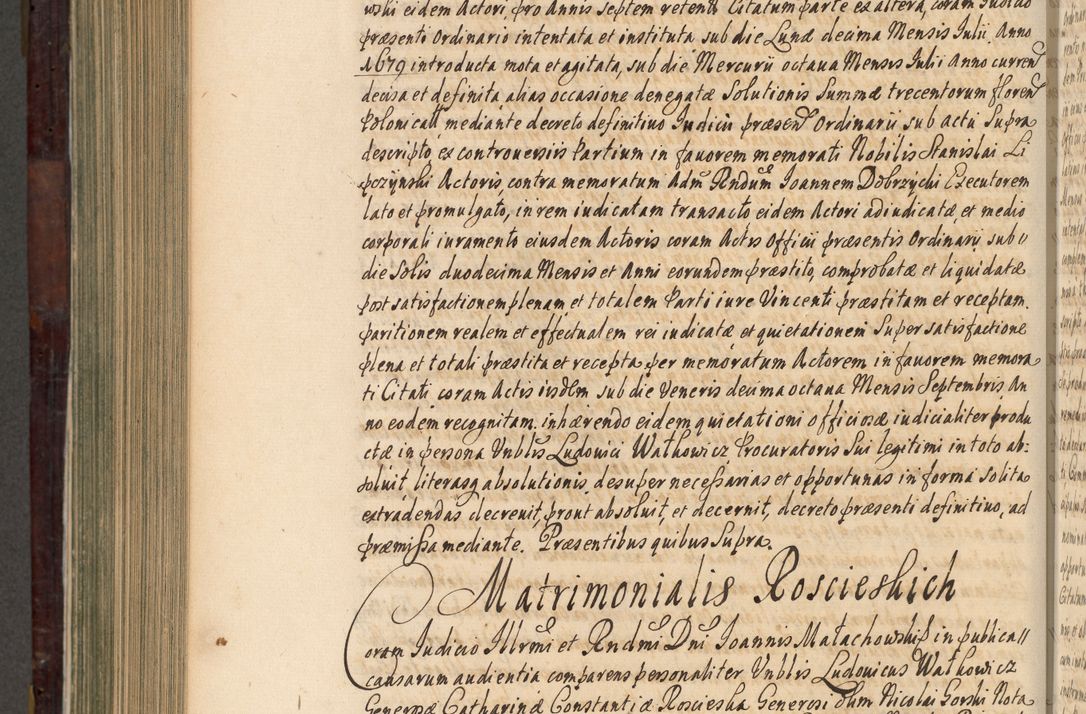 wski eidem Actori, pro Annis Septem retent Citatum parte ex altera, coram Iudicio
præsenti Ordinario intentata et instituta sub die Lunæ decima Mensis Iulii. Anno
1679 introducta mota et agitata, sub die Mercurii octaua Mensis Iulii Anno curren
decisa et definita, alias occasione denegatæ Solutionis Summæ trecentorum floren
Polonicall mediante decreto definitiuo Iudicii præsen Ordinarii sub actu Supra
descripto, ex controuersiis Partium in fauorem memorati Nobilis Stanislai Li
pczÿnski Actoris, contra memoratum Adm Rndum Ioannem Dobrzycki Executorem
lato et promulgato, in rem iudicatam transacto eidem Actori adiudicatæ, et medio
corporali iuramento eiusdem Actoris coram Actis Officii præsentis Ordinarii sub
die Solis duodecima Mensis et Anni eorundem præstito, comprobatæ et liquidatæ
post satisfactionem plenam et totalem Parti iure Vincenti præstitam et receptam
paritionem realem et effectualem rei iudicatæ et quietationem Super satisfactione
plena et totali præstita et recepta per memoratum Actorem in fauorem memora
ti Citati coram Actis iisdem sub die Veneris decima octaua Mensis Septembris An
no eodem recognitam. inhærendo eidem quietationi officiosæ iudicialiter produ
ctæ in persona Vnblis Ludouici Watkowicz Procuratoris Sui legitimi in toto ab:
soluit, literasq absolutionis, desuper necessarias et opportunas in forma solita
extradendas decreuit, prout absoluit, et decernit, decreto præsenti definitiuo, ad
præmissa mediante. Præsentibus quibus Supra.
Matrimonialis Roscieskich
Coram Iudicio Illrmi et Rndmi Dni Ioannis Małachowskiß in publica
causarum audientia comparens personaliter Vnblis Ludouicus Watkowicz
Generosæ Catharinæ Constantiæ Roscieska Generosi olim Nicolai Gorski Nota